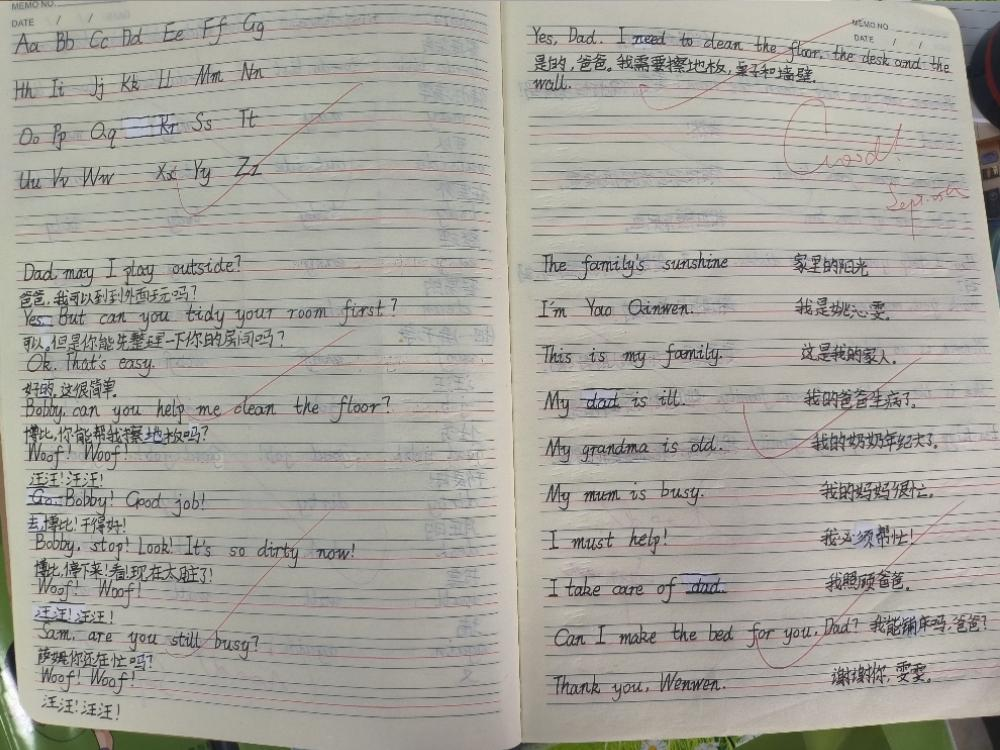 MEMO NO.
DATE / /
Aa Bb Cc Dd Ee Ff Gg
Hh Ii Jj Kk Ll Mm Nn
Oo Pp Qq Rr Ss Tt
Uu Vv Ww Xx Yy Zz
Dad, may I play outside?
爸爸,我可以到到外面玩吗?
Yes. But can you tidy your room first?
可以。但是你能先整理一下你的房间吗?
Ok. That's easy.
好的,这很简单。
Bobby, can you help me clean the floor?
博比,你能帮我擦地板吗?
Woof! Woof!
汪汪!汪汪!
Go. Bobby! Good job!
去,博比!干得好!
Bobby, stop! Look! It's so dirty now!
博比,停下来!看!现在太脏了!
Woof! Woof!
汪汪!汪汪!
Sam, are you still busy?
萨姆你还在忙吗?
Woof! Woof!
汪汪!汪汪!
MEMO NO.
DATE / /
Yes, Dad. I need to clean the floor, the desk and the
是的,爸爸。我需要擦地板,桌子和墙壁。
wall.
Good!
The family's sunshine 家里的阳光
I'm Yao Qinwen. 我是姚沁雯。
This is my family. 这是我的家人。
My dad is ill. 我的爸爸生病了。
My grandma is old. 我的奶奶年纪大了。
My mum is busy. 我的妈妈很忙。
I must help! 我必须帮忙!
I take care of dad. 我照顾爸爸。
Can I make the bed for you, Dad? 我能铺床吗,爸爸?
Thank you, Wenwen. 谢谢你,雯雯。